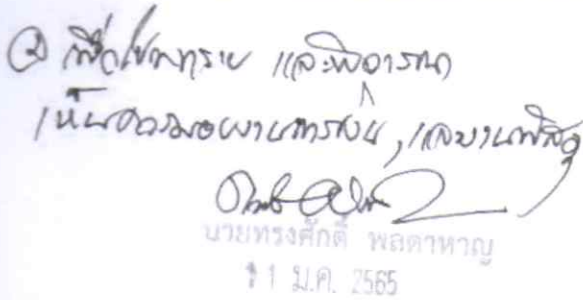 ② เพื่อโปรดทราบ และพิจารณา
เห็นควรมอบงานการเงิน, และงานพัสดุ
นายทรงศักดิ์ พลดาหาญ
11 ม.ค. 2565